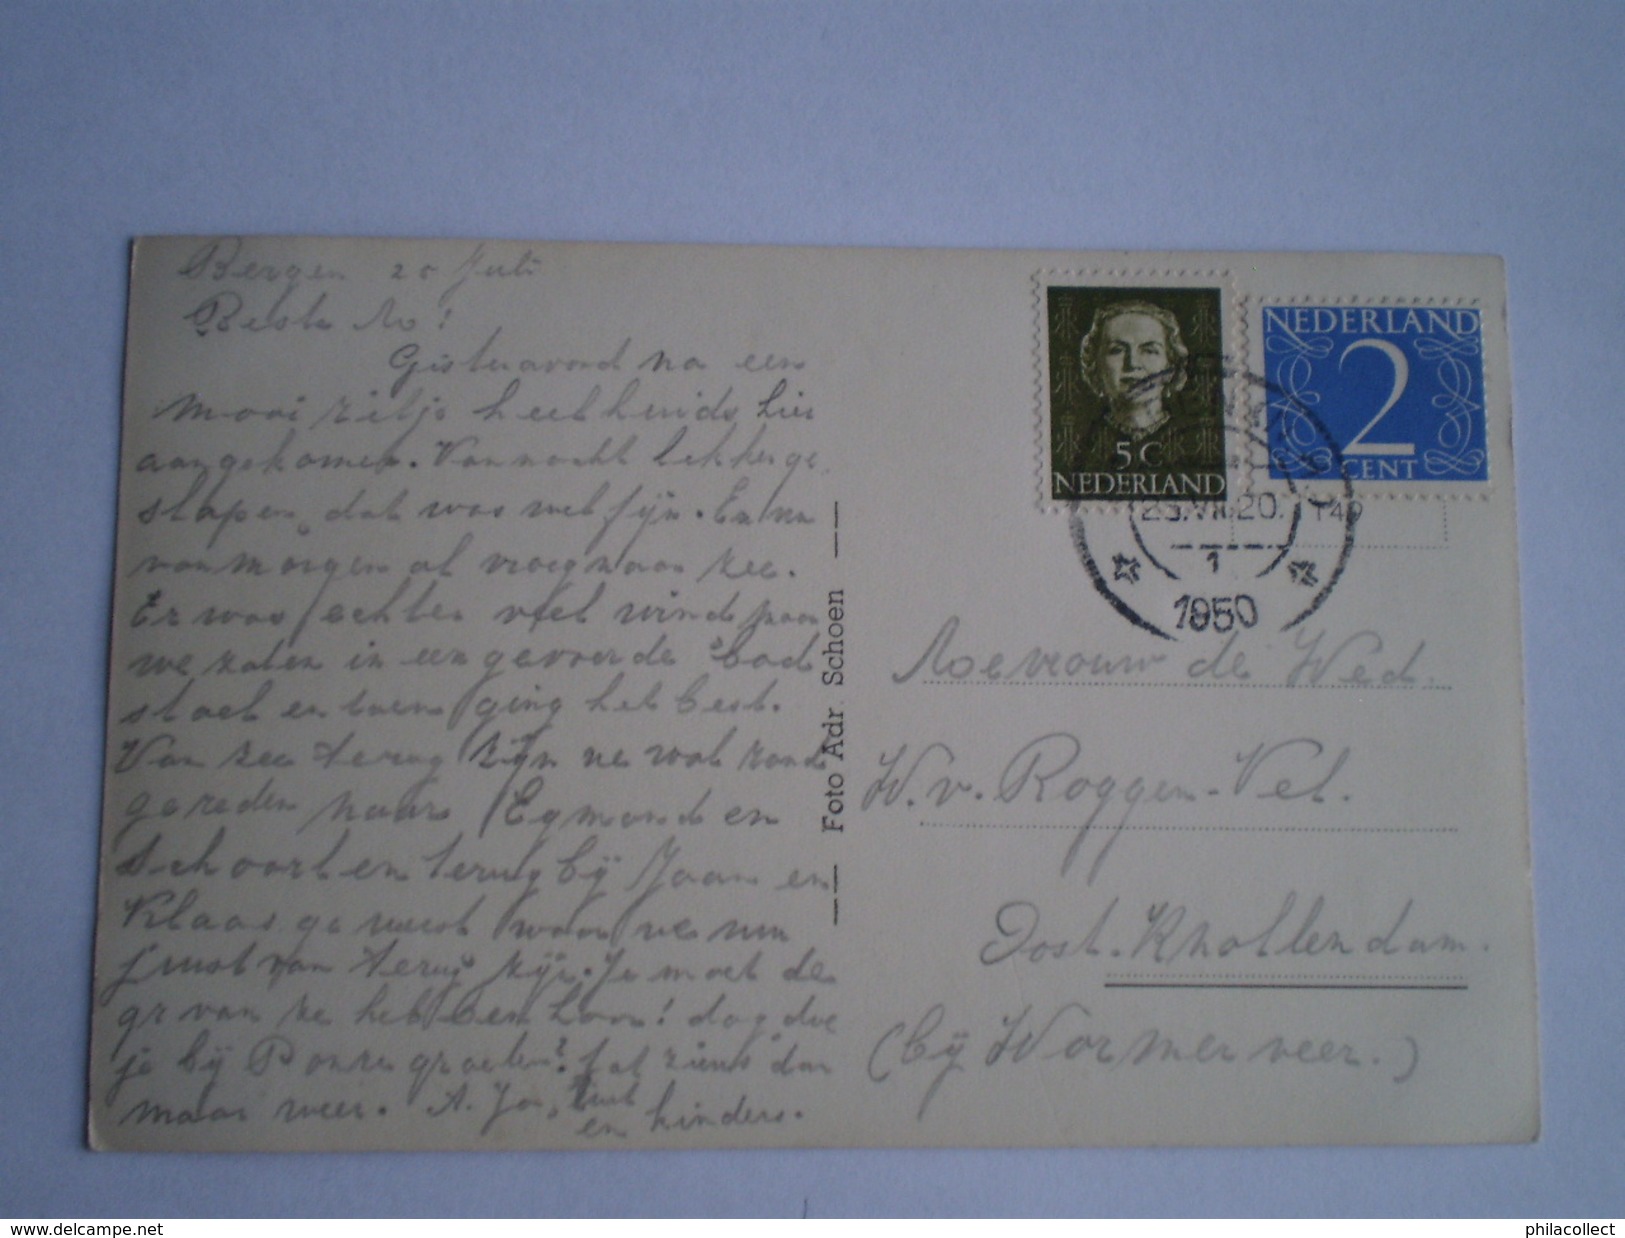 Bergen 25 Juli
Beste No!
Gisteravond na een
mooi ritje heelhuids hier
aangekomen. Vannacht lekker ge
slapen, dat was wel fijn. En nu
vanmorgen al vroeg naar zee.
Er was echter veel wind, maar
we zaten in een gevoerde bad
stoel en toen ging het best.
Van zee terug zijn we wat rond
gereden naar Egmond en
Schoorl en terug bij Jaan en
Klaas geweest waar we nu
juist van terug zijn. Je moet de
gr van ze hebben hoor! dag doe
je bij Ponze groeten? Tot ziens dan
maar weer. A. Jo,
en kinders.
Foto Adr. Schoen
NEDERLAND
5 C
NEDERLAND
2
CENT
25.VII.20.
1
1950
Mevrouw de Wed.
W. v. Roggen-Vet.
Oost-Knollendam.
(bij Wormerveer.)
www.delcampe.net
philacollect